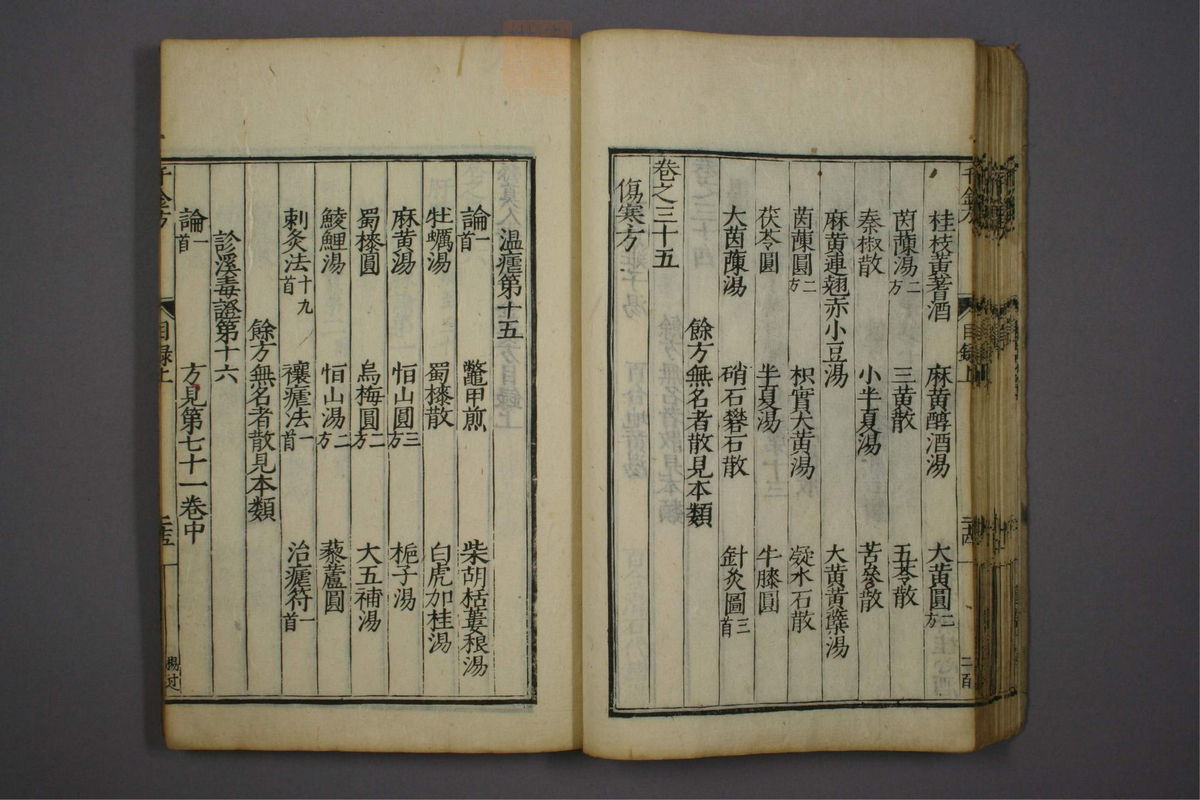 桂枝黃蓍酒 麻黃醇酒湯 大黃圓二方
茵蔯湯二方 三黃散 五苓散
秦椒散 小半夏湯 苦參散
麻黃連翹赤小豆湯 大黃黃蘗湯
茵蔯圓二方 枳實大黃湯 凝水石散
茯苓圓 半夏湯 牛膝圓
大茵蔯湯 硝石礬石散 針灸圖三首
餘方無名者散見本類
卷之三十五
傷寒方
溫瘧第十五
論一首 鼈甲煎 柴胡栝蔞根湯
牡蠣湯 蜀㯶散 白虎加桂湯
麻黃湯 恒山圓三方 梔子湯
蜀㯶圓 烏梅圓二方 大五補湯
鯪鯉湯 恒山湯二方 藜蘆圓
刺灸法十九首 禳瘧法一首 治瘧符一首
餘方無名者散見本類
診溪毒證第十六
論一首 方見第七十一卷中
千金方 目錄上